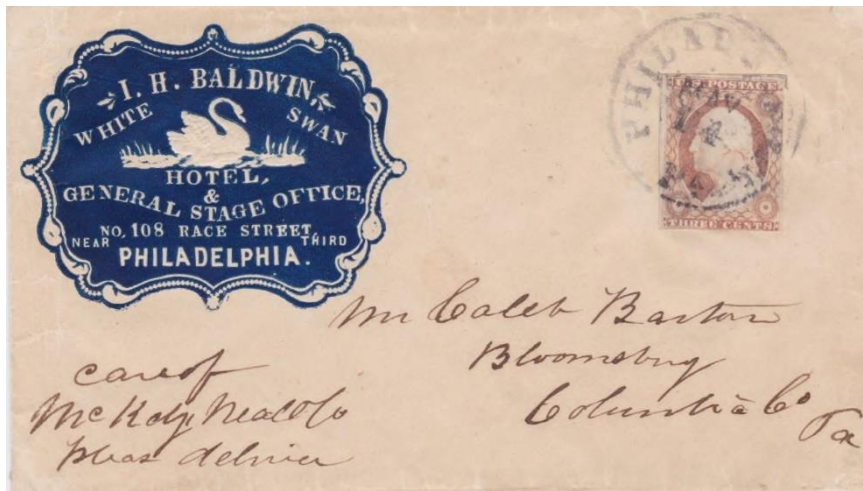 I. H. BALDWIN,
WHITE SWAN
HOTEL,
&
GENERAL STAGE OFFICE,
NO. 108 RACE STREET,
NEAR THIRD
PHILADELPHIA.
PHILAD
MAY
14
U.S. POSTAGE
THREE CENTS
Mr Caleb Barton
Bloomsburg
Columbia Co
Pa
care of
McKelvy Neal & Co
pleas deliver